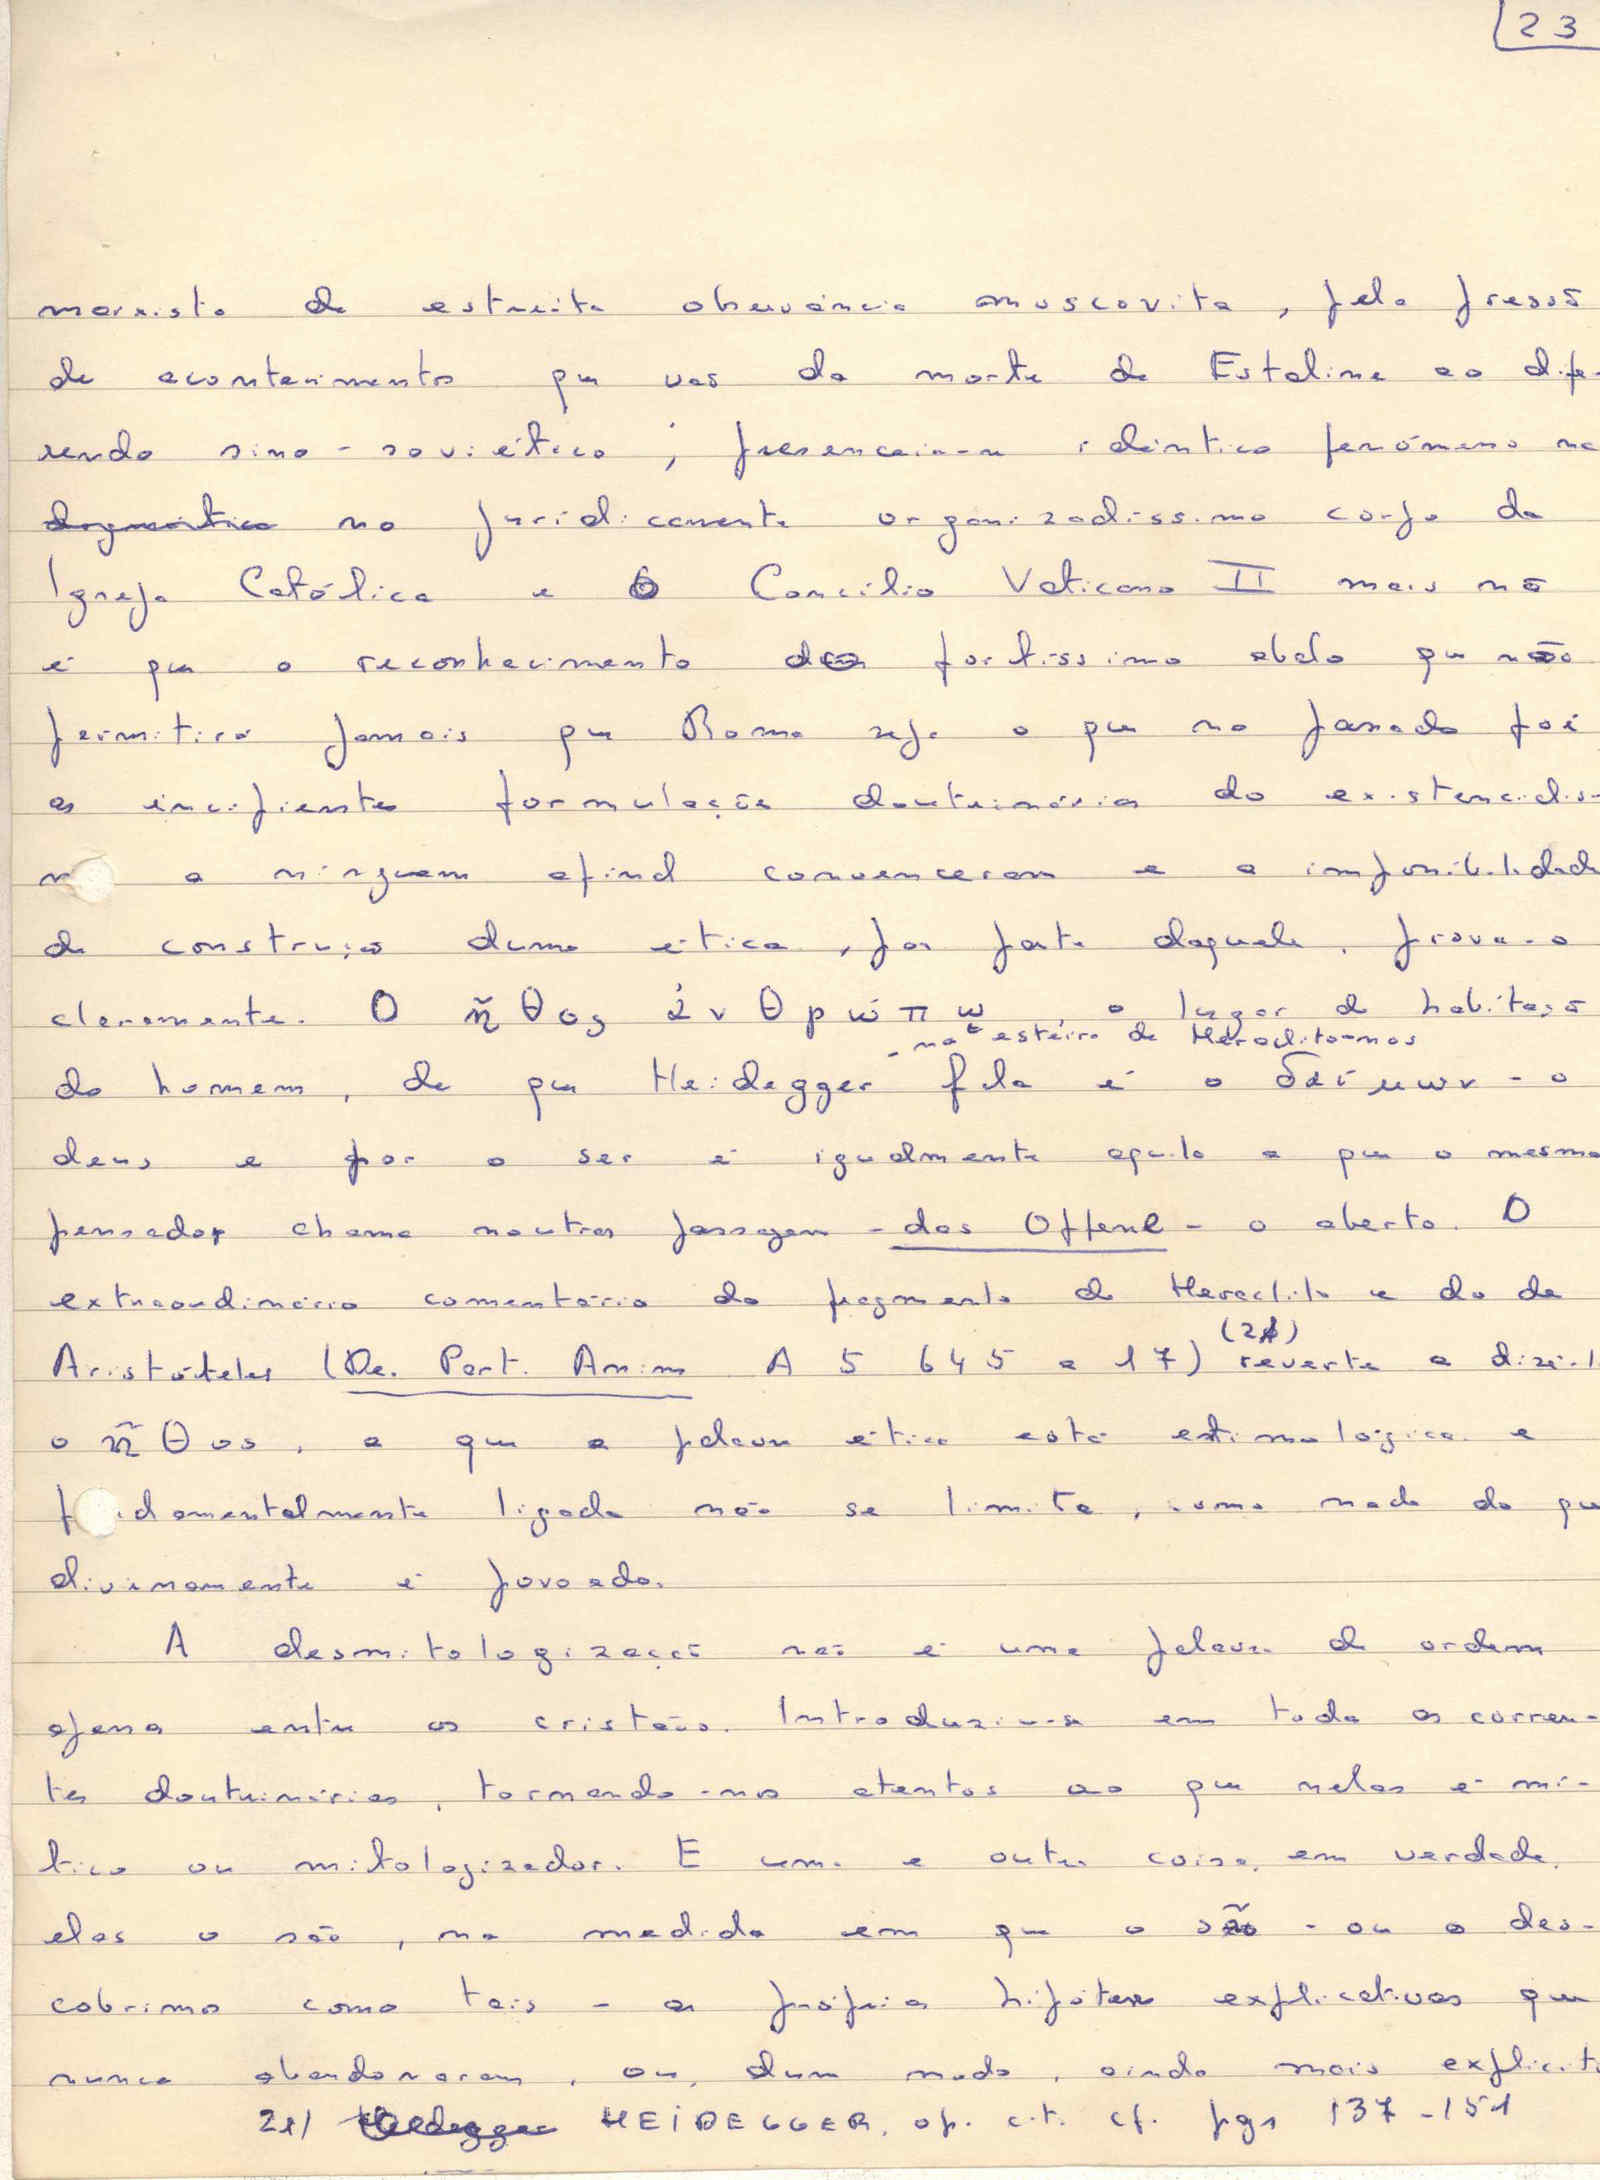 23
marxista de estreita observância moscovita, pela pressã
de acontecimentos que vas da morte de Estaline ao dife-
rendo sino-soviético; presenceia-se idêntico fenómeno na
dogmática no juridicamente organizadíssimo corpo da
Igreja Católica e o Concílio Vaticano II mais não
é que o reconhecimento do fortíssimo abalo que não
permitirá jamais que Roma seja o que no passado foi
as incipientes formulações doutrinárias do existencialis-
mo a ninguem afinal convenceram e a impossibilidade
de construção duma ética, por parte daquele, prova-o
claramente. O ἦθος ἀνθρώπῳ, o lugar de habitaçã
- na esteira de Heraclito-nos
do homem, de que Heidegger fala é o δαίμων - o
deus e por o ser é igualmente aquilo a que o mesmo
pensador chama noutras passagens - das Offene - o aberto. O
extraordinário comentário do fragmento de Heraclito e do de
(21)
Aristóteles (De. Part. Anim A 5 645 a 17) reverte a dizê-l
o ἦθος, a que a palavra ética está etimológica e
fundamentalmente ligada não se limita, como nada do que
divinamente é povoado.
A desmitologização não é uma palavra de ordem
apenas entre os cristãos. Introduziu-se em todas as corren-
tes doutrinárias, tornando-nos atentos ao que nelas é mí-
tico ou mitologizador. E uma e outra coisa, em verdade,
elas o são, na medida em que o são - ou o des-
cobrimos como tais - as próprias hipóteses explicativas que
nunca abandonaram, ou, dum modo, ainda mais explicit
21) Heidegger HEIDEGGER, op. cit. cf. pgs 137-151